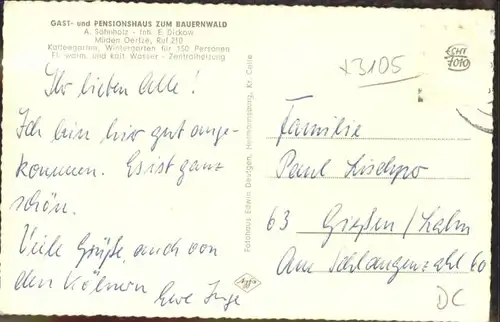 GAST- und PENSIONSHAUS ZUM BAUERNWALD
A. Söhnholz - Inh. E. Dickow
Müden Oertze, Ruf 210
Kaffeegarten, Wintergarten für 150 Personen
Fl. warm. und kalt Wasser - Zentralheizung
Ihr lieben Alle!
Ich bin hir gut ange-
kommen. Es ist ganz
schön.
Viele Grüße, auch von
den Kölnern
Ewe Inge
Fotohaus Edwin Deutgen, Hermannsburg, Kr. Celle
Agfa
x3105
ECHT
FOTO
Familie
Paul Lischpo
63 Gießen/Lahn
Am Schlangenzahl 60
DC